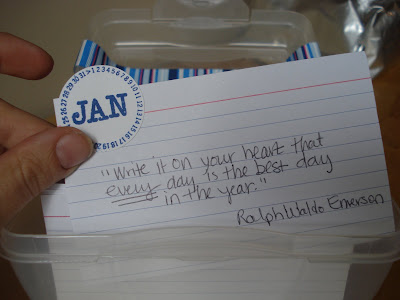 JAN
1 2 3 4 5 6 7 8 9 10 11 12 13 14 15 16 17 18 19 20 21 22 23 24 25 26 27 28 29 30 31
"Write it on your heart that
every day is the best day
in the year."
Ralph Waldo Emerson